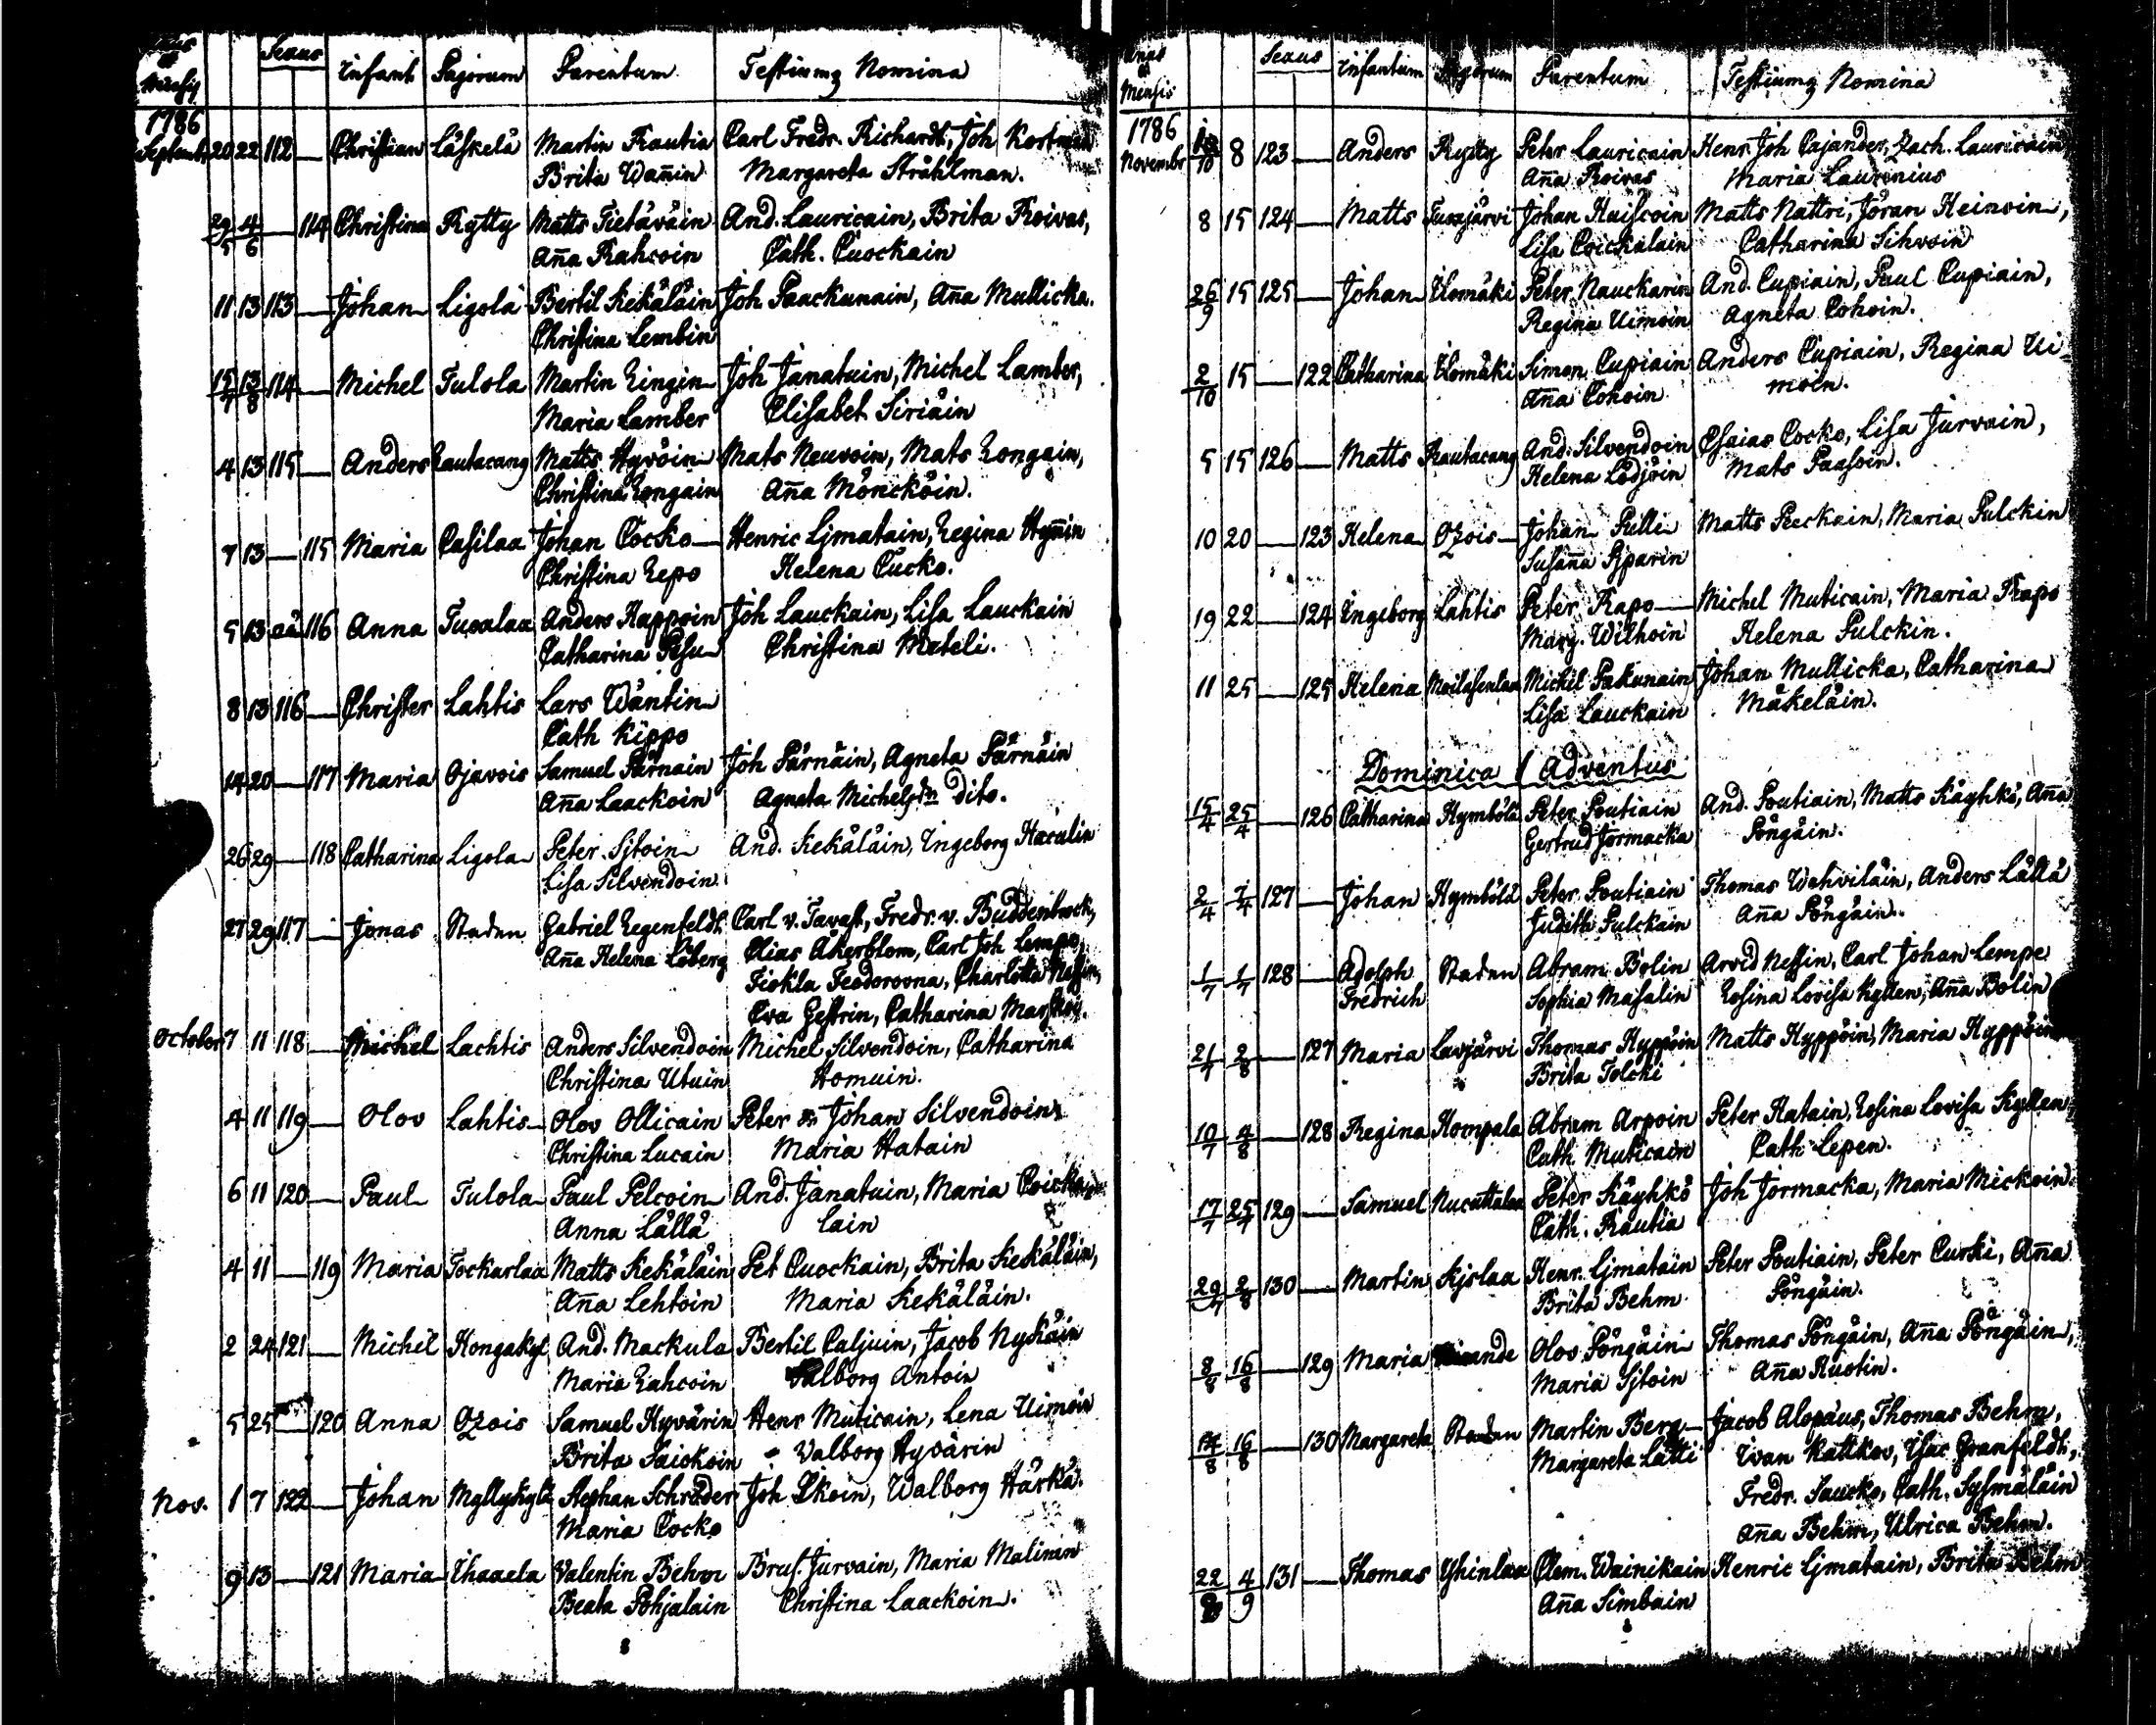 Sexus
Mensis Infant Pagorum Parentum Testiumq Nomina
1786
Septemb 20 22 112 — Christian Läskelä Martin Rautia Carl Fredr. Richardt, Joh Kortman
Brita Wanin Margareta Stråhlman.
29/5 4/6 — 114 Christina Rytty Matts Tietäväin And. Lauricain, Brita Roivas,
Aña Rahcoin Cath. Cuockain
11 13 113 — Johan Ligola Bertil Kekäläin Joh Paackunain, Aña Mullicka.
Christina Lembin
15/7 13/8 114 — Michel Tulola Martin Zingin Joh Janatuin, Michel Lamber,
Maria Lamber Elisabet Siriäin
4 13 115 — Anders Rautacang Matts Hyvöin Mats Neuvoin, Mats Longain,
Christina Longain Aña Möncköin.
7 13 — 115 Maria Casilaa Johan Cocko Henric Ljmatain, Regina Hyñin
Christina Repo Helena Cucko.
5 13 — 116 Anna Tuoalaa Anders Happoin Joh Lauckain, Lisa Lauckain
Catharina Pesu Christina Mateli.
8 13 116 — Christer Lahtis Lars Wäntin
Cath Kippo
14 20 — 117 Maria Ojavois Samuel Pärnäin Joh Pärnäin, Agneta Pärnäin
Aña Laackoin Agneta Michelsdr Dito.
26 29 — 118 Catharina Ligola Peter Sjtoin And. Kekäläin, Ingeborg Haculin
Lisa Silvendoin
27 29 117 — Jonas Staden Gabriel Regenfeldt Carl v. Tavast, Fredr. v. Buddenbrock,
Aña Helena Löberg Elias Åkerblom, Carl Joh Lempe,
Fiokla Feodorovna, Charlotta
Eva Gestrin, Catharina
October 7 11 118 — Michel Lachtis Anders Silvendoin Michel Silvendoin, Catharina
Christina Utuin Homuin.
4 11 119 — Olov Lahtis Olov Ollicain Peter Johan Silvendoin
Christina Lucain Maria Hatain
6 11 120 — Paul Tulola Paul Pelcoin And. Janatuin, Maria Coicka
Anna Lällä lain
4 11 — 119 Maria Tockarlaa Matts Kekäläin Pet Cuockain, Brita Kekäläin,
Aña Lehtoin Maria Kekäläin.
2 24 121 — Michel Hongakyl And. Mackula Bertil Caljuin, Jacob Nykäin
Maria Rahcoin Valborg Antoin
5 25 — 120 Anna Ozois Samuel Hyvärin Henr Muticain, Lena Uimoin
Brita Saickoin Valborg Hyvärin
Nov. 1 7 122 — Johan Myllykylä Stephan Schröder Joh Ikoin, Walborg Härkä.
Maria Cocko
9 13 — 121 Maria Ihaaela Valentin Behm Brus. Jurvain, Maria Malinin
Beata Pohjalain Christina Laackoin.
Sexus
Mensis Infantum Pagorum Parentum Testiumq Nomina
1786
Novembr 8 123 — Anders Rytty Peter Lauricain Henr Joh Cajander, Zach. Lauricain
Aña Roivas Maria Laurenius
8 15 124 — Matts Tuozjärvi Johan Huiscoin Matts Nattri, Jöran Heinoin,
Lisa Coickalain Catharina Sihvoin
26/9 15 125 — Johan Ilomäki Peter Nauckarin And. Cupiain, Paul Cupiain,
Regina Uimoin Agneta Cohoin.
2/10 15 — 122 Catharina Ilomäki Simon Cupiain Anders Cupiain, Regina Ui
Aña Cohoin moin.
5 15 126 — Matts Rautacang And. Silvendoin Esaias Cocko, Lisa Jurvain,
Helena Lodjoin Mats Paasoin.
10 20 — 123 Helena Ozois Johan Pulli Matts Peckain, Maria Pulckin
Susaña Pjparin
19 22 — 124 Ingeborg Lahtis Peter Rapo Michel Muticain, Maria Rapo
Marg. Wilhoin Helena Pulckin.
11 25 — 125 Helena Michel Pakunain Johan Mullicka, Catharina
Lisa Lauckain Mäkeläin.
Dominica 1 Adventus
15/4 25/4 — 126 Catharina Hymbölä Peter Poutiain And. Poutiain, Matts Käyhkö, Aña
Gertrud Jormacka Pöngäin.
2/4 7/4 127 — Johan Hymbölä Peter Poutiain Thomas Wahviläin, Anders Lällä
Judith Pulckain Aña Pöngäin.
1/7 1/7 128 — Adolph Staden Abram Bolin Arvid Nessin, Carl Johan Lempe
Fredrich Sophia Masalin Rosina Lovisa Kyllen, Aña Bolin
21/7 2/8 — 127 Maria Lavjärvi Thomas Hyppöin Matts Hyppöin, Maria Hyppöin
Brita Tolcki
10/7 4/8 — 128 Regina Hompala Abram Arpoin Peter Hatain, Rosina Lovisa Kyllen
Cath Muticain Cath Lepen.
17/7 25/7 129 — Samuel Nucuttalaa Peter Käyhkö Joh Jormacka, Maria Mickoin.
Cath. Rautia
29/7 2/8 130 — Martin Kjslaa Henr. Ljmatain Peter Poutiain, Peter Curki, Aña
Brita Behm Pöngäin.
8/8 16/8 — 129 Maria Olov Pöngäin Thomas Pöngäin, Aña Pöngäin,
Maria Sjtoin Aña Ruotin.
14/8 16/8 — 130 Margareta Staden Martin Berg Jacob Alopäus, Thomas Behm,
Margareta Lätti Ivan Kattkov, Isac Granfeldt,
Fredr. Saucko, Cath. Sysmäläin
Aña Behm, Ulrica Behm.
22/8 4/9 131 — Thomas Yhinlaa Clem. Wainikain Henric Ljmatain, Brita Behm
Aña Simbain